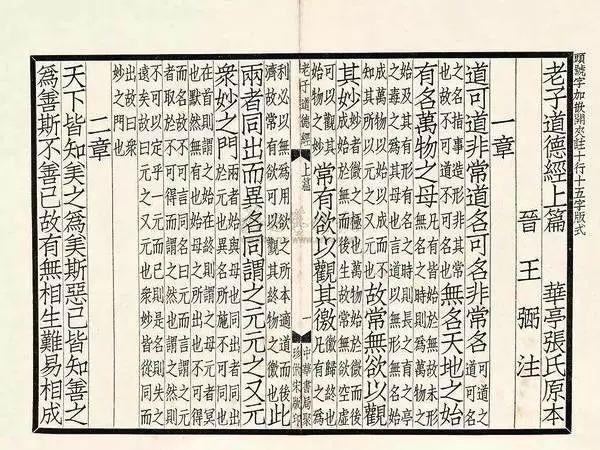 頭號字加嵌開夾註十行十五字版式
老子道德經上篇 華亭張氏原本
晉王弼注
一章
道可道非常道名可名非常名可道之道可名
之名指事造形非其常也故不可道不可名也無名天地之始
有名萬物之母凡有皆始於無故未形無名之時則爲萬物之
始及其有形有名之時則長之育之亭之毒之爲其母也言道以無形無名始
成萬物以始以成而不知其所以元之又元也故常無欲以觀
其妙妙者微之極也萬物始於微而後成始於無而後生故常無欲空虛
可以觀其始物之妙常有欲以觀其徼徼歸終也凡有之爲
老子道德經 上篇 一 中華書局聚珍倣宋版印
利必以無爲用欲之所本適道而後濟故常有欲可以觀其終物之徼也此
兩者同出而異名同謂之元元之又元
衆妙之門兩者始與母也同出者同出於元也異名所施不可同也
在首則謂之始在終則謂之母元者冥也默然無有也始母之所出也不可得
而名故不可言同名曰元而言謂之元者取於不可得而謂之然也謂之然則
不可以定乎一元而已則是名則失之遠矣故曰元之又元也衆妙皆從同而
出故曰衆妙之門也
二章
天下皆知美之爲美斯惡已皆知善之
爲善斯不善已故有無相生難易相成